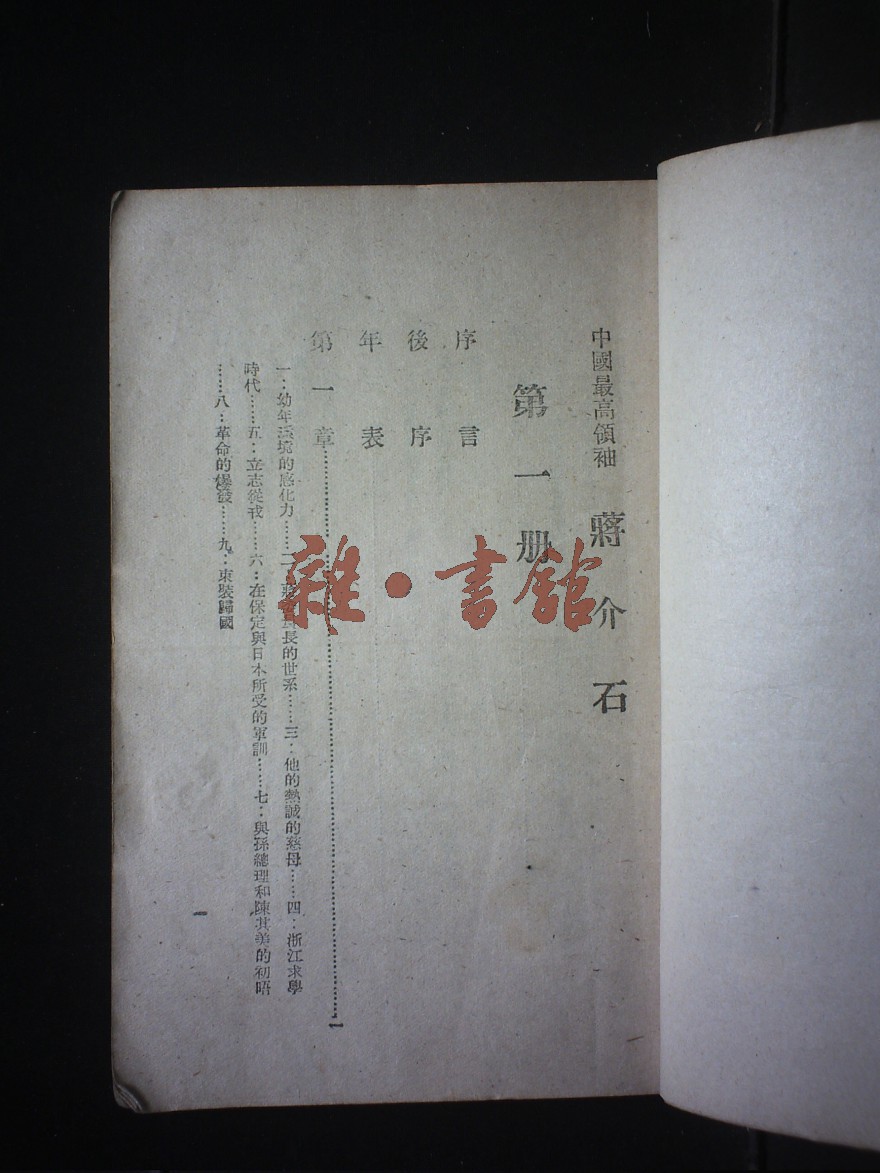 中國最高領袖 蔣介石
第一册
序言
後序
年表
第一章……一
一：幼年環境的感化力……二：蔣委員長的世系……三：他的熱誠的慈母……四：浙江求學
時代……五：立志從戎……六：在保定與日本所受的軍訓……七：與孫總理和陳其美的初晤
……八：革命的爆發……九：束裝歸國
一
雜·書館